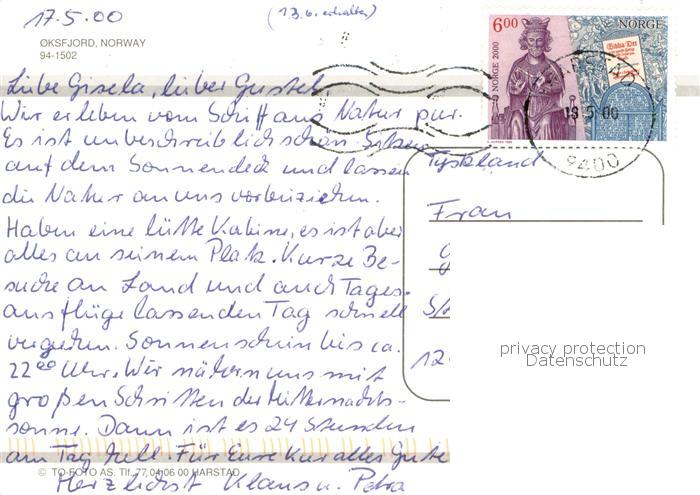 17.5.00
(1.3.6. erhalten)
ØKSFJORD, NORWAY
94-1502
6.00
NORGE
NORGE 2000
18.5.00
9400
Liebe Gisela, lieber Gustel,
Wir erleben vom Schiff aus Natur pur.
Es ist unbeschreiblich schön. Sitzen
auf dem Sonnendeck und lassen
die Natur an uns vorbeiziehen.
Haben eine lütte Kabine, es ist aber
alles an seinem Platz. Kurze Be-
suche an Land und auch Tages-
ausflüge lassen den Tag schnell
vergehen. Sonnenschein bis ca.
22⁰⁰ Uhr. Wir nähern uns mit
großen Schritten der Mitternachts-
sonne. Dann ist es 24 Stunden
am Tag hell. Für Eure Kur alles Gute
Herzlichst Klaus u. Petra
Tyskland
Frau
12
privacy protection
Datenschutz
© TO-FOTO AS. Tlf. 77 04 06 00 HARSTAD